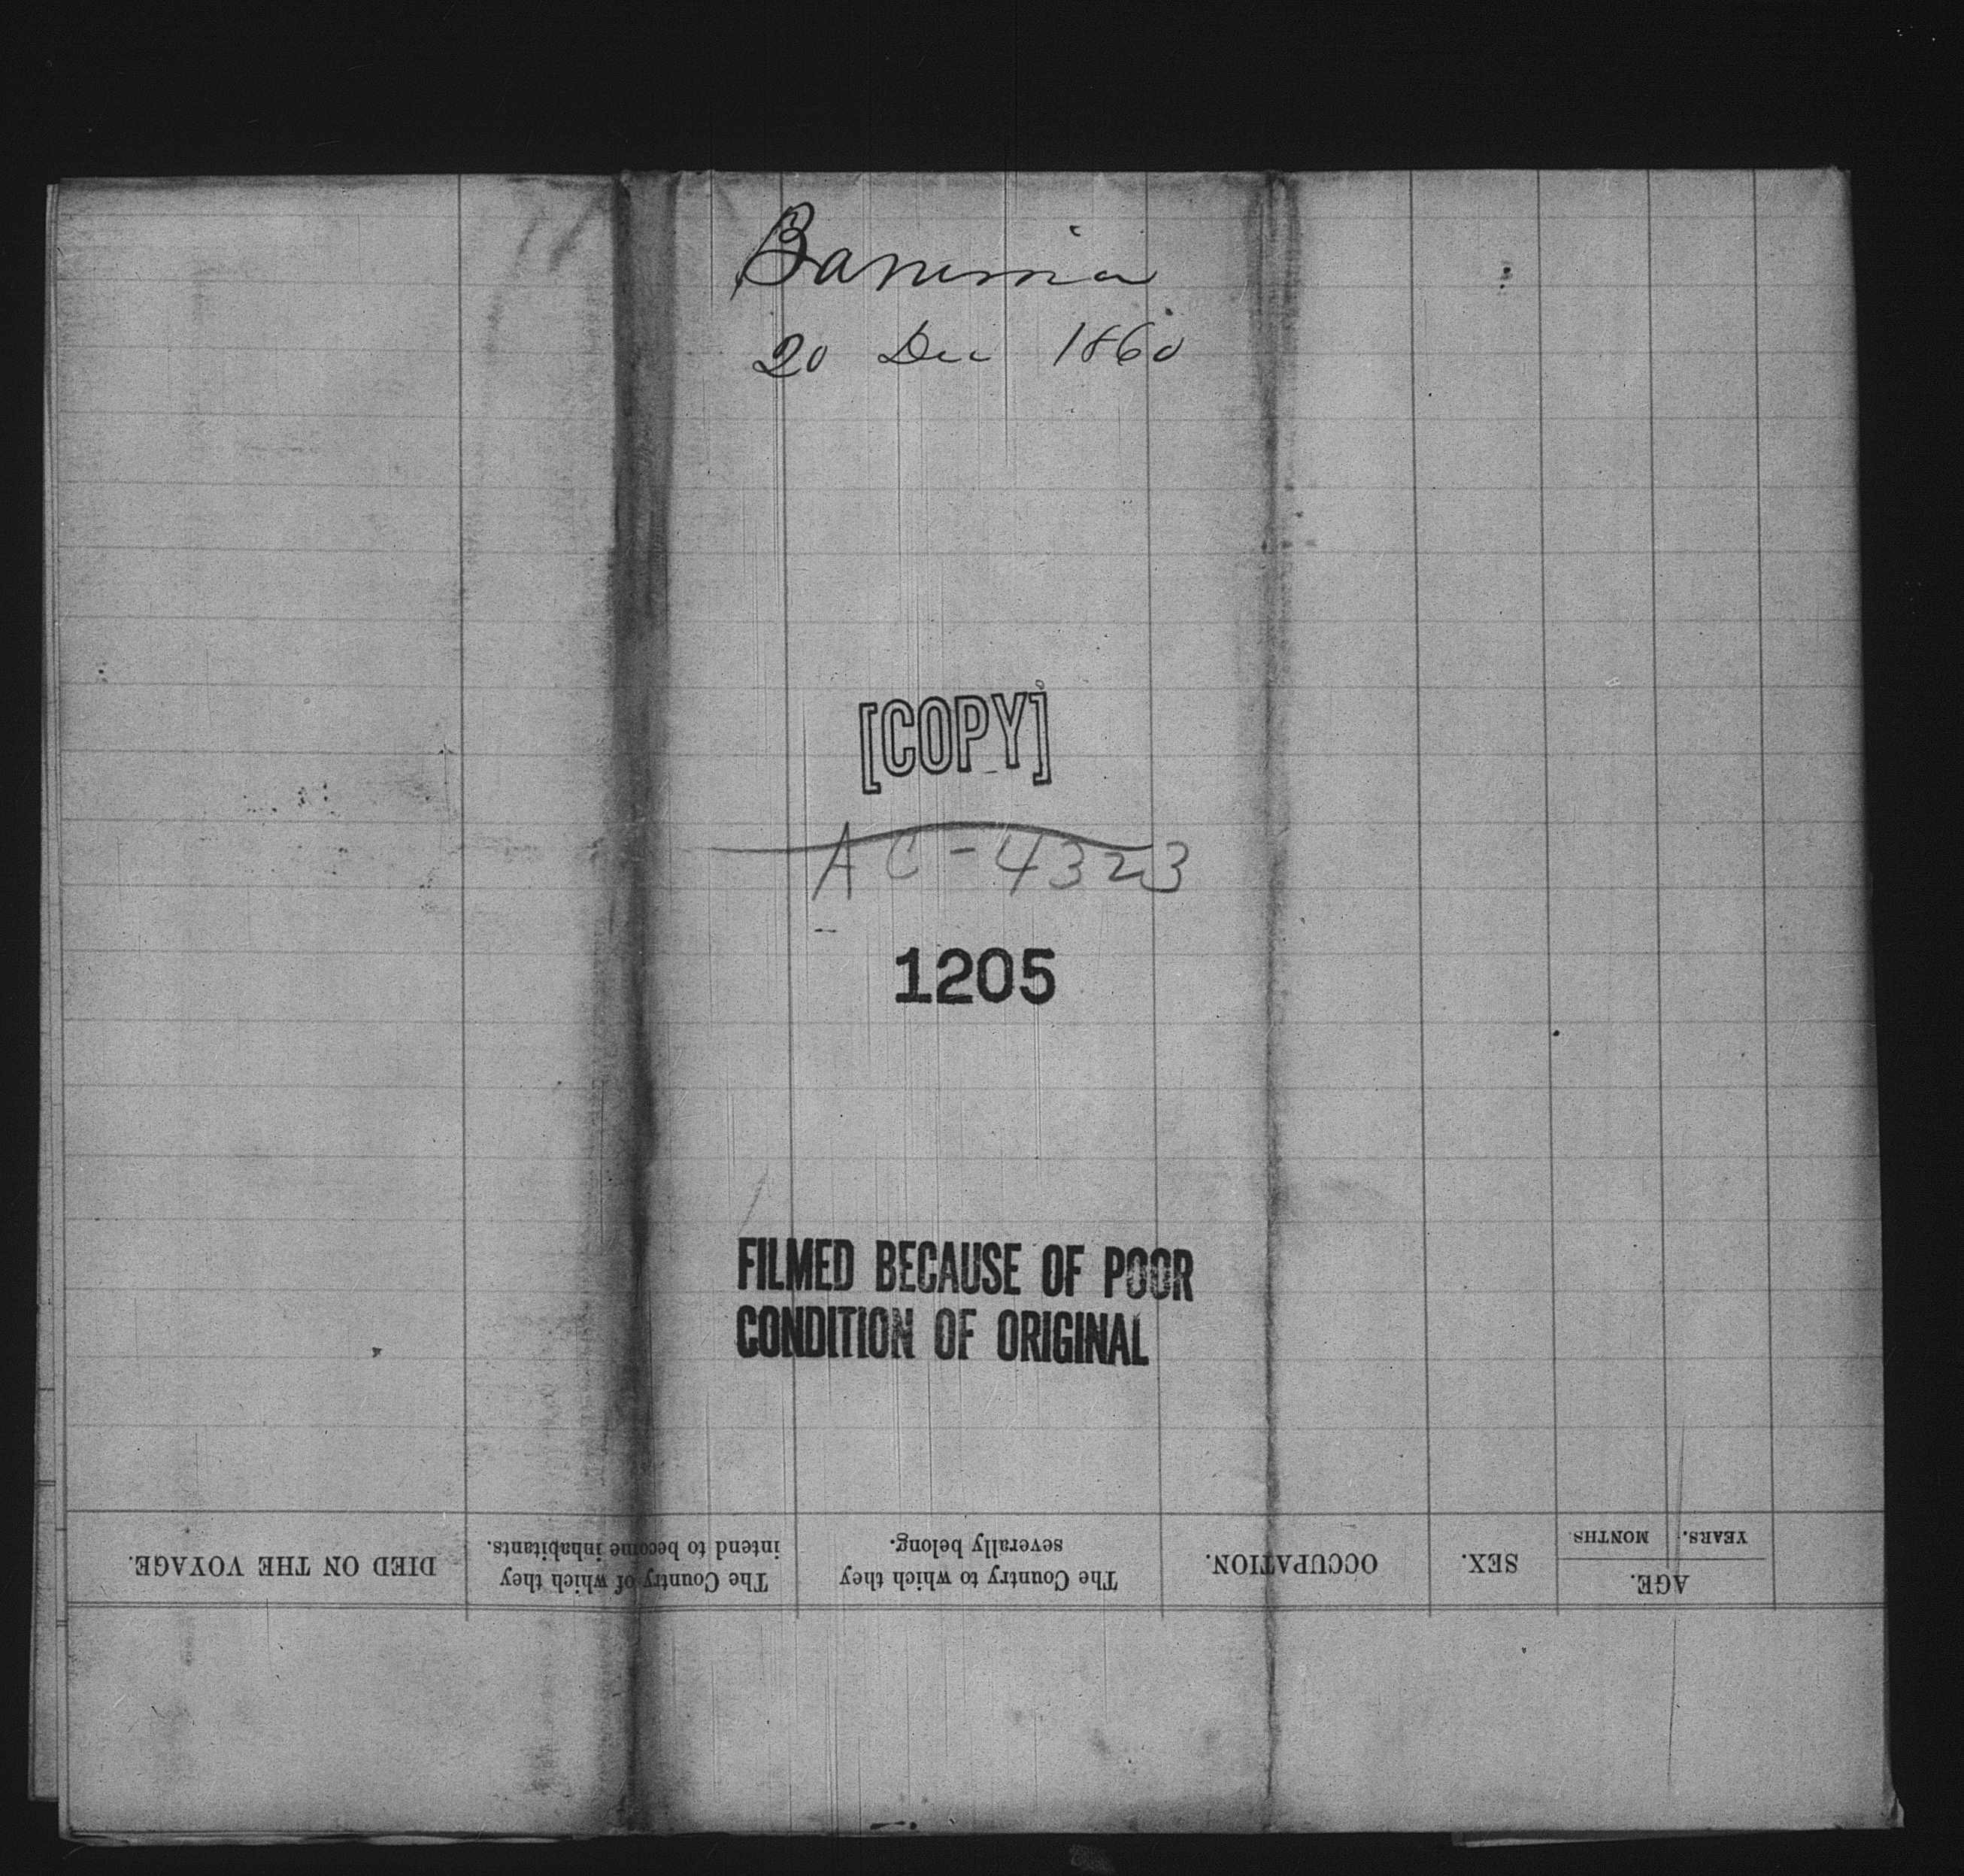 Bavaria
20 Dec 1860
[COPY]
AC-4323
1205
FILMED BECAUSE OF POOR
CONDITION OF ORIGINAL
AGE.
YEARS.
MONTHS
SEX.
OCCUPATION.
The Country to which they
severally belong.
The Country of which they
intend to become inhabitants.
DIED ON THE VOYAGE.